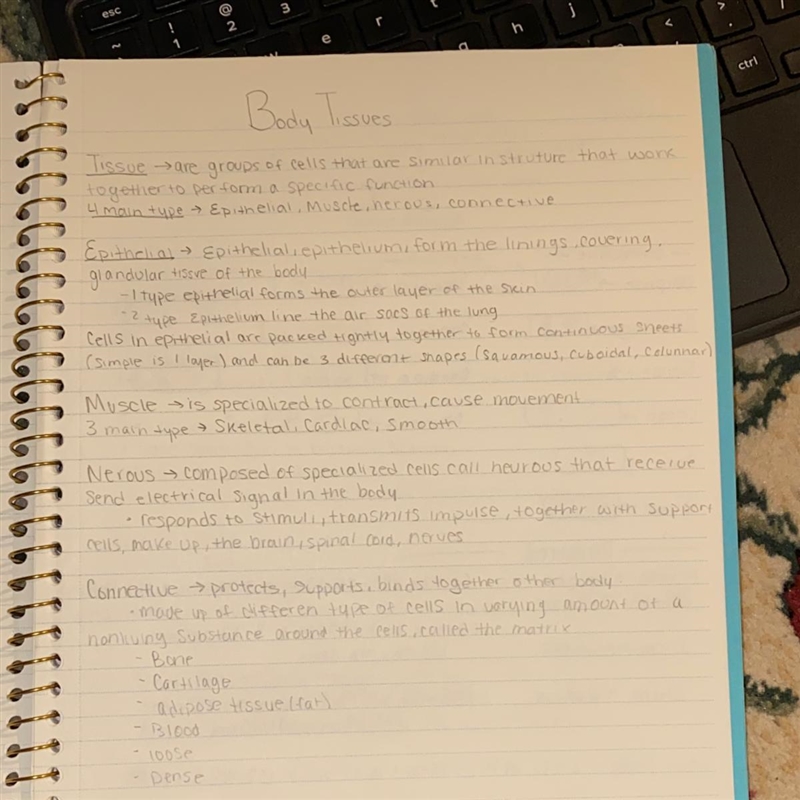 esc
! 1
@ 2
3
~
e
r
t
g
h
j
<
>
ctrl
Body Tissues
Tissue → are groups of cells that are similar in struture that work
together to perform a specific function
4 main type → Epithelial, Muscle, nerous, connective
Epithelial → Epithelial, epithelium, form the linings, covering,
glandular tissue of the body
- 1 type epithelial forms the outer layer of the skin
- 2 type Epithelium line the air sacs of the lung
Cells in epithelial are packed tightly together to form continuous sheets
(simple is 1 layer) and can be 3 different shapes (Squamous, Cuboidal, Colunnar)
Muscle → is specialized to contract, cause movement
3 main type → Skeletal, Cardiac, Smooth
Nerous → composed of specialized cells call neurous that receive
send electrical signal in the body
• responds to stimuli, transmits impulse, together with support
cells, make up, the brain, spinal cord, nerves
Connective → protects, supports, binds together other body
• made up of differen type of cells in varying amount of a
nonliving substance around the cells, called the matrix
- Bone
- Cartilage
- adipose tissue (fat)
- Blood
- loose
- Dense